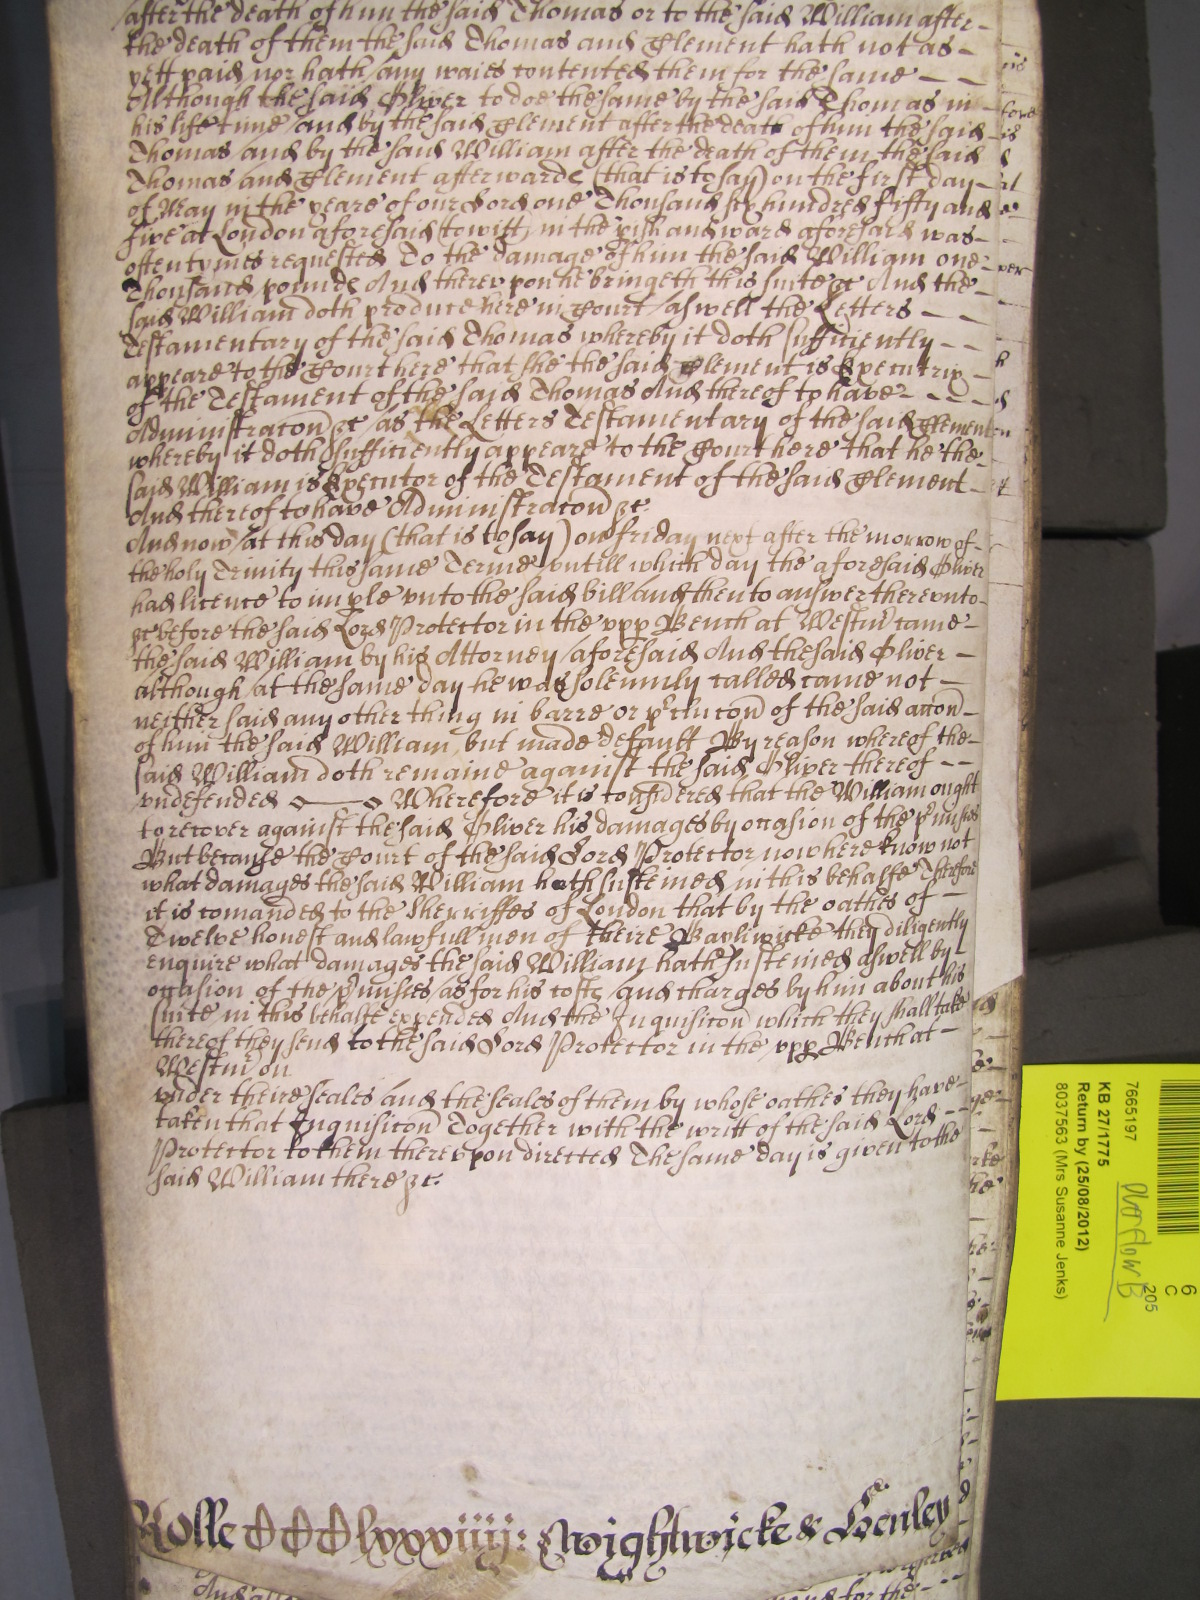 after the death of him the said Thomas or to the said William after
the death of them the said Thomas and Clement hath not as
yett paid nor hath any waies contented them for the same
Although the said Oliver to doe the same by the said Thomas in
his life time and by the said Clement after the death of him the said
Thomas and by the said William after the death of them the said
Thomas and Clement afterwards (that is to say) on the first day
of May in the yeare of our Lord one Thousand six hundred fifty and
five at London aforesaid (to witt) in the pish and ward aforesaid was
oftentymes requested To the damage of him the said William one
Thousand pounds And therevpon he bringeth this suite &c And the
said William doth produce here in Court aswell the Letters
Testamentary of the said Thomas whereby it doth sufficiently
appeare to the Court here that she the said Clement is Executrix
of the Testament of the said Thomas And thereof to have
Administracon &c as the Letters Testamentary of the said Clement
whereby it doth sufficiently appeare to the Court here that he the
said William is Executor of the Testament of the said Clement
And thereof to have Administracon &c
And now at this day (that is to say) on friday next after the morrow of
the holy Trinity this same Terme vntill which day the aforesaid Oliver
had licence to imple vnto the said bill and then to answer therevnto
&c before the said Lord Protector in the vpp Bench at Westmr came
the said William by his Attorney aforesaid And the said Oliver
although at the same day he was solemnly called came not
neither said any other thing in barre or pclucon of the said accon
of him the said William but made default By reason whereof the
said William doth remaine against the said Oliver thereof
vndefended Wherefore it is considered that the William ought
to recover against the said Oliver his damages by occasion of the pmisses
But because the Court of the said Lord Protector now here know not
what damages the said William hath susteined in this behalfe Therefore
it is comanded to the Sherriffes of London that by the oathes of
Twelve honest and lawfull men of theire Bayliwicke they diligently
enquire what damages the said William hath susteined aswell by
occasion of the pmisses as for his costs and charges by him about his
suite in this behalfe expended And the Inquisicon which they shall take
thereof they send to the said Lord Protector in the vpp Bench at
Westmr on
vnder theire seales and the seales of them by whose oathes they have
taken that Inquisicon Together with the writt of the said Lord
Protector to them therevpon directed The same day is given to the
said William there &c
Rolle CCClxxviiij: Wightwicke & Henley
7665197
KB 27/1775
Return by (25/08/2012)
8037563 (Mrs Susanne Jenks)
Overflow B
205
6
C